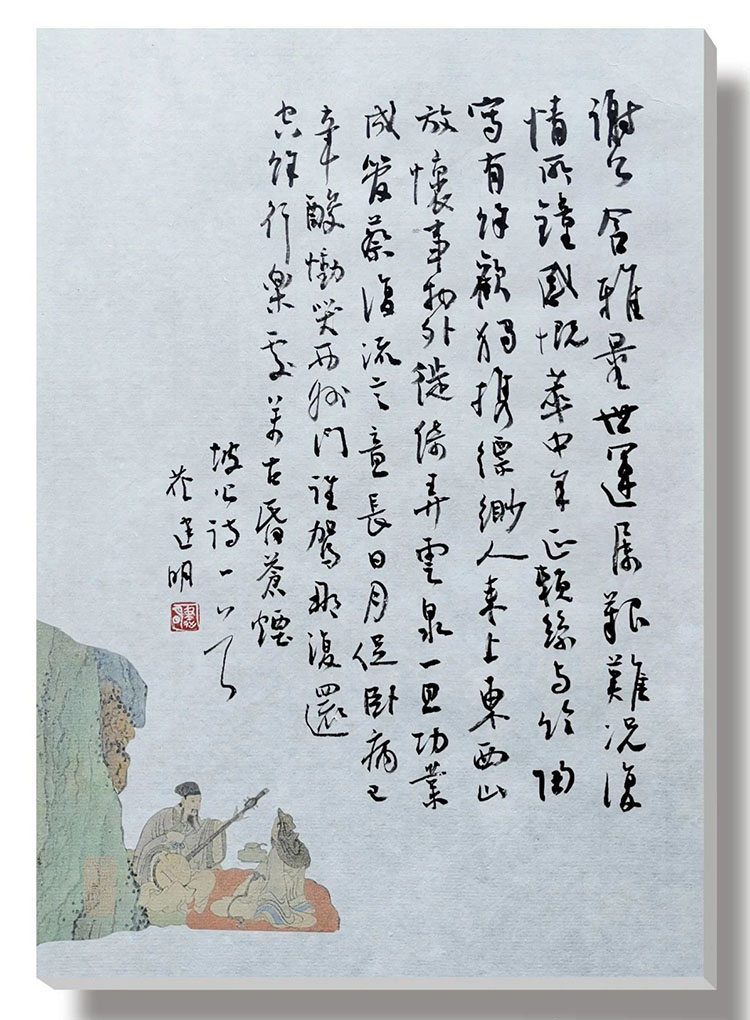 謝公含雅量世運屬艱難況復
情所鐘感慨萃中年正賴絲与竹陶
寫有餘歡獨携縹緲人来上東西山
放懷事物外徙倚弄雲泉一旦功業
成管蔡復流言意長日月促卧病已
辛酸慟哭西州門誰駕那復還
空餘行樂處萬古昏蒼煙
坡公詩一首
建明